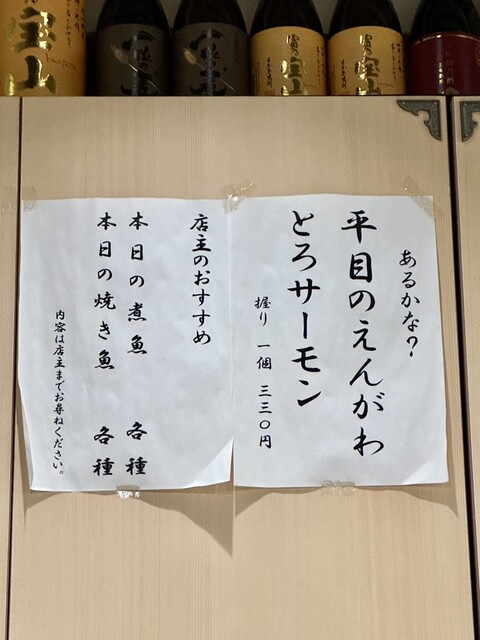 あるかな?
平目のえんがわ
とろサーモン
握り 一個 三三〇円
店主のおすすめ
本日の煮魚 各種
本日の焼き魚 各種
内容は店主までお尋ねください。
宝山
富乃宝山
富乃宝山